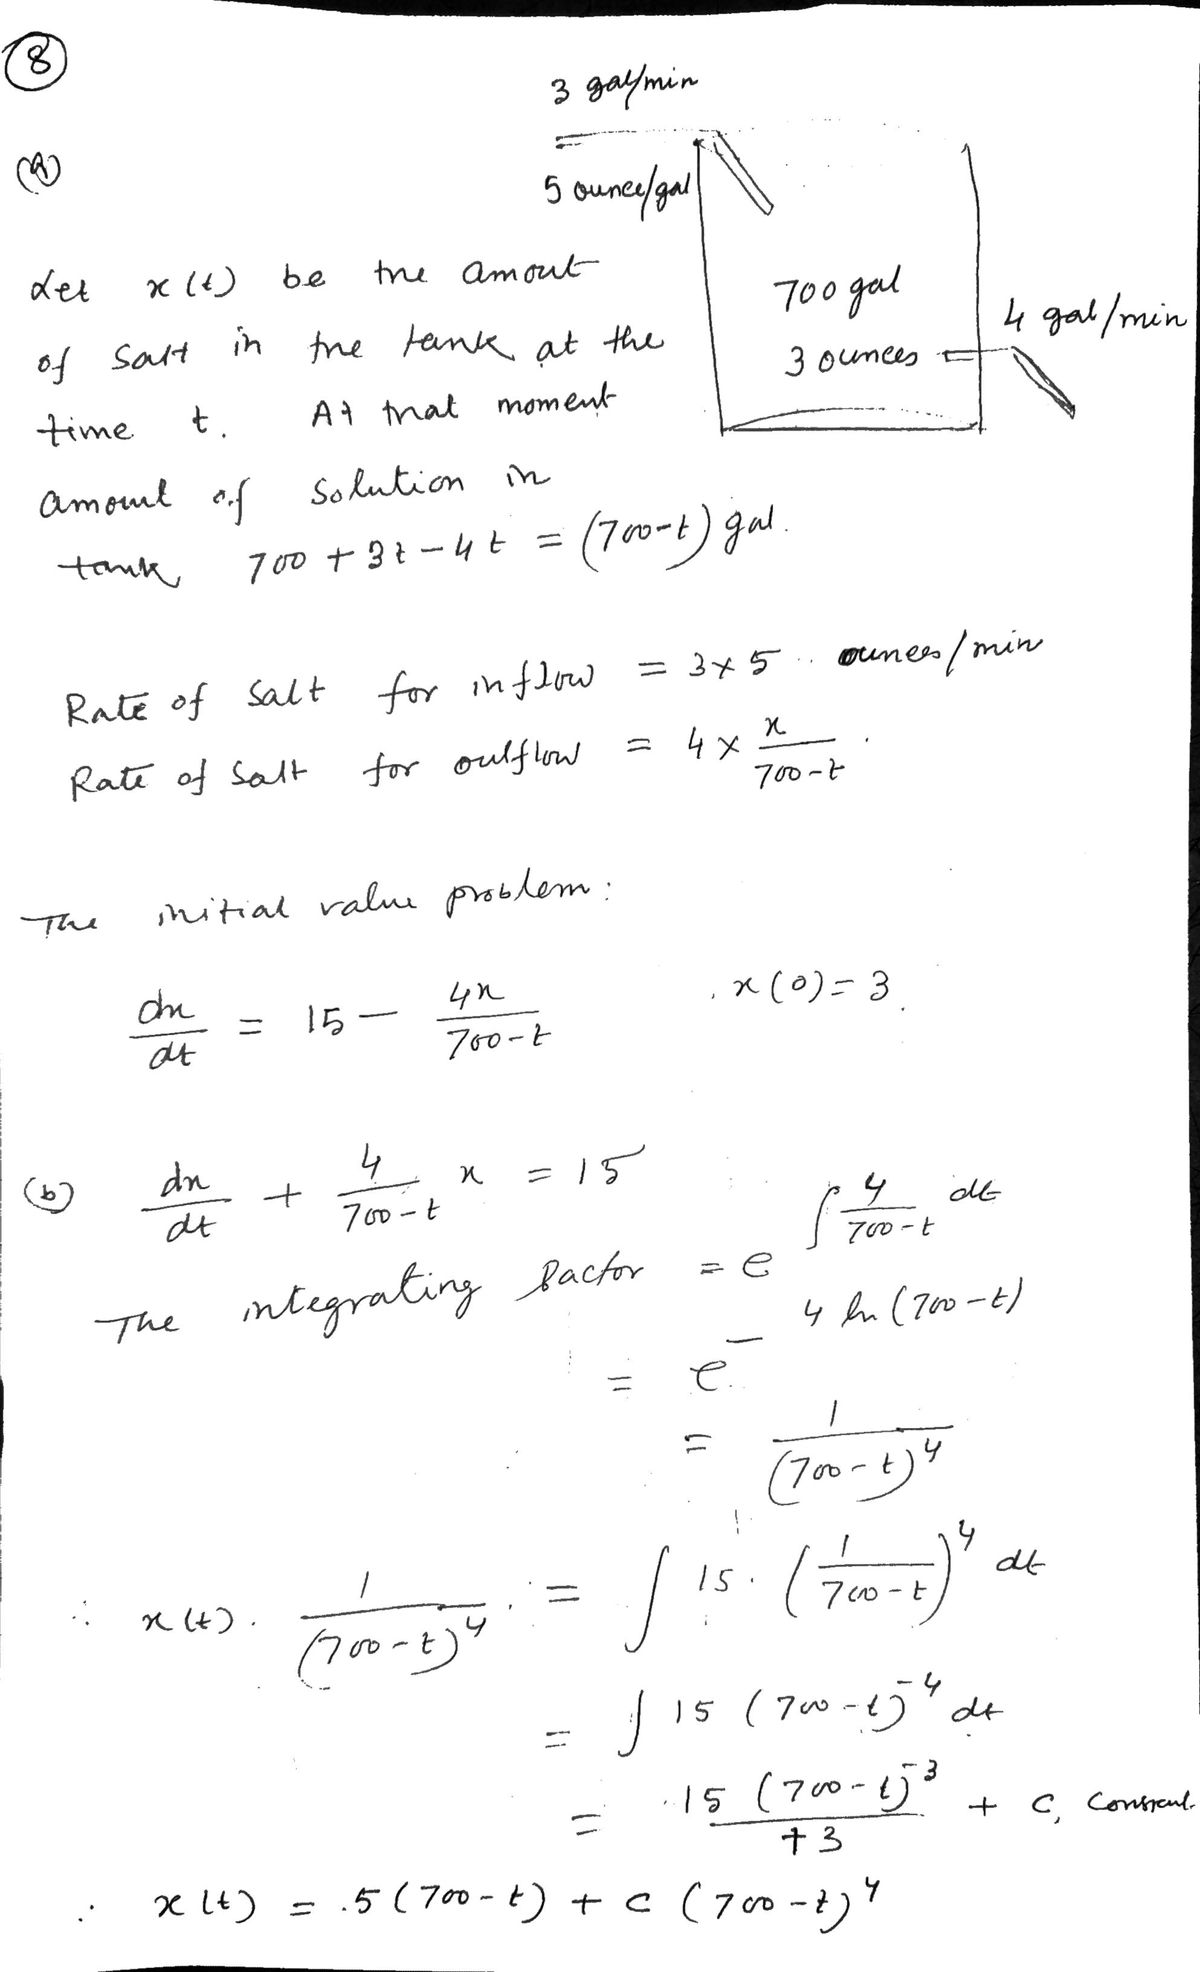 8
(a)
3 gal/min
5 ounce/gal
700 gal
3 ounces
4 gal/min
Let x(t) be the amout
of salt in the tank at the
time t. At that moment
amount of solution in
tank 700 + 3t - 4t = (700-t) gal.
Rate of salt for inflow = 3×5 ounces/min
Rate of salt for outflow = 4 × x/(700-t).
The initial value problem:
dx/dt = 15 - 4x/(700-t) , x(0) = 3.
(b) dx/dt + 4/(700-t) x = 15
The integrating factor = e^(∫ 4/(700-t) dt)
= e^(-4 ln(700-t))
= 1/(700-t)^4
∴ x(t) · 1/(700-t)^4 = ∫ 15 · (1/(700-t))^4 dt
= ∫ 15 (700-t)^-4 dt
= 15 (700-t)^-3 / +3 + C, constant.
∴ x(t) = 5(700-t) + C (700-t)^4